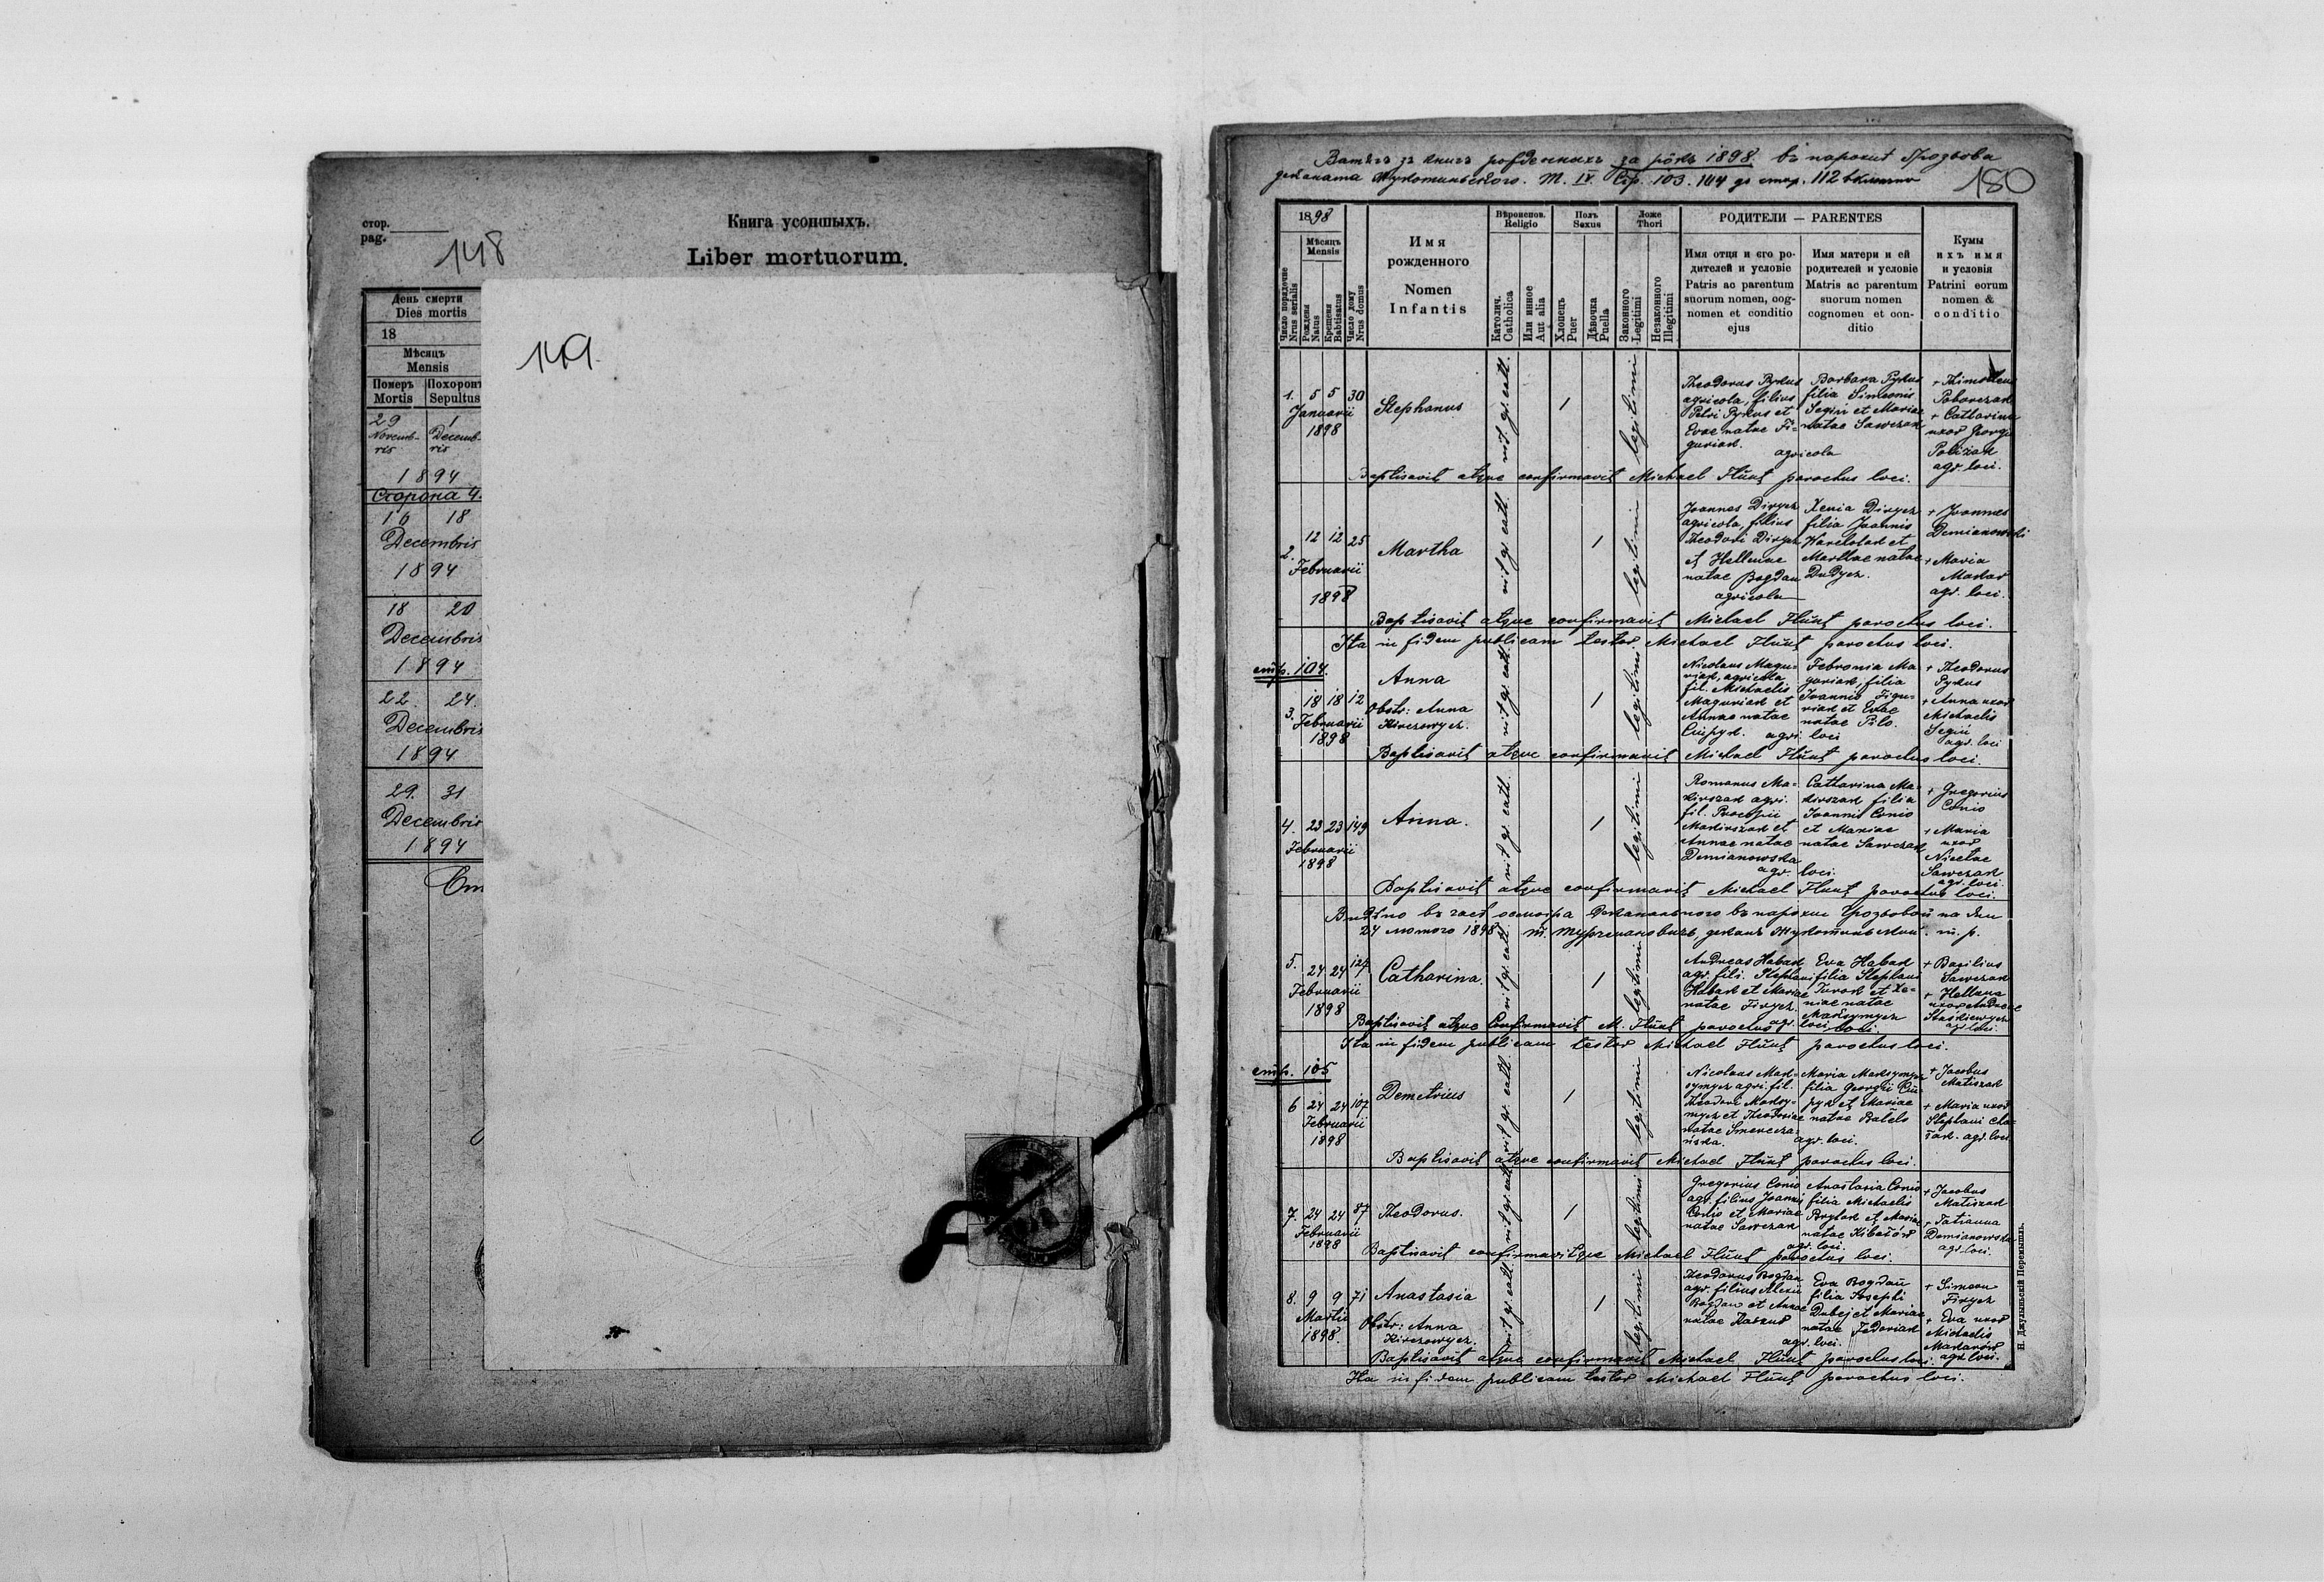 стор.
pag.
148
Книга усопшыхъ.
Liber mortuorum.
День смерти
Dies mortis
18
Мѣсяцъ
Mensis
Померъ Похорон
Mortis Sepultus
29 1
Novemb- Decemb-
ris ris
1894
Сторона 4.
16 18
Decembris
1894
18 20
Decembris
1894
22. 24.
Decembris
1894
29. 31
Decembris
1894
149.
за рôкъ 1898. въ парохіи Грозьова
деканата Жукотиньского. Т. IV. Стр. 103. 104 до стор. 112
180
1898
Мѣсяцъ
Mensis
Число порядочне
Nrus serialis
Рожденя
Natus
Крещеня
Babtisatus
Число дому
Nrus domus
Имя
рожденного
Nomen
Infantis
Вѣроиспов.
Religio
Католич.
Catholica
Или инное
Aut alia
Полъ
Sexus
Хлопецъ
Puer
Дѣвочка
Puella
Ложе
Thori
Законного
Legitimi
Незаконного
Illegitimi
РОДИТЕЛИ — PARENTES
Имя отця и єго ро-
дителей и условіе
Patris ac parentum
suorum nomen, cog-
nomen et conditio
ejus
Имя матери и ей
родителей и условіе
Matris ac parentum
suorum nomen
cognomen et con-
ditio
Кумы
ихъ имя
и условія
Patrini eorum
nomen &
conditio
1. 5 5 30
Januarii
1898
Stephanus
rit. gr. cath.
1
legitimi
Theodorus Pyrus
agricola, filius
Petri Pyrus et
Evae natae Fi-
guriak.
Barbara Pyrus
filia Simeonis
Segin et Mariae
natae Sawczak
agricola
+ Catharina
uxor Georgii
agr. loci.
Baptisavit atque confirmavit Michael Flunt parochus loci.
2. 12 12 25
Februarii
1898
Martha
rit. gr. cath.
1
legitimi
Joannes Dirycz
agricola, filius
Theodori Dirycz
et Hellenae
natae Bogdan
agricola
Xenia Dirycz
filia Joannis
et
Marthae natae
Dudycz.
+ Joannes
Demianowski
+ Maria
agr. loci.
Baptisavit atque confirmavit Michael Flunt parochus loci.
Ita in fidem publicam testor Michael Flunt parochus loci.
стр. 104.
3. 18 18 12
Februarii
1898
Anna
Obstr: Anna
Kirczowycz.
rit gr. cath.
1
legitimi
Nicolaus Magu-
riak, agricola
fil. Michaelis
Maguriak et
Annae natae
Febronia Ma-
guriak, filia
Joannis Figu-
riak et Evae
natae
agr. loci
+ Theodorus
Pyrus
+ Anna uxor
Michaelis
Segin
agr. loci
Baptisavit atque confirmavit Michael Flunt parochus loci.
4. 23 23 149
Februarii
1898
Anna.
rit gr. cath.
1
legitimi
Romanus Ma-
agri.
fil. Procopii
et
Annae natae
Demianowska
Catharina Ma-
filia
Joannis Conio
et Mariae
natae Sawczak
agr. loci.
+ Gregorius
Conio
+ Maria
uxor
Nicetae
Sawczak
agr. loci.
Baptisavit atque confirmavit Michael Flunt parochus loci.
въ часѣ осмотра деканального въ парохіи Грозьовой на дни
24 лютого 1898
5. 24 24 127
Februarii
1898
Catharina.
rit gr. cath.
1
legitimi
Andreas Habak
agr. fili. Stephani
Habak et Mariae
natae Firycz.
Eva Habak
filia Stephani
Turok et Xe-
niae natae
Maksymycz
agr. loci
+ Basilius
Sawczak
+ Hellena
uxor Andreae
agr. loci.
Baptisavit atque Confirmavit M. Flunt parochus loci.
Ita in fidem publicam testor Michael Flunt parochus loci.
стр. 105
6 24 24 107
Februarii
1898
Demetrius
rit gr. cath.
1
legitimi
Nicolaus Mak-
symycz agri. fil.
Theodori Maksy-
mycz et Theodoriae
natae Smerecza-
ńska.
Maria Maksymycz
filia Georgii
et Mariae
natae
agr. loci.
+ Jacobus
Matiszak
+ Maria uxor
Stephani
agr. loci
Baptisavit atque confirmavit Michael Flunt parochus loci.
7. 24 24 87
Februarii
1898
Theodorus.
rit gr. cath.
1
legitimi
Gregorius Conio
agr. filius Joannis
Conio et Mariae
natae Sawczak
Anastasia Conio
filia Michaelis
et Mariae
natae
agr. loci.
+ Jacobus
Matiszak
+ Tatianna
Demianowska
agr. loci.
Baptisavit confirmavitque Michael Flunt parochus loci.
8. 9 9 71
Martii
1898.
Anastasia
Obstr: Anna
Kirczowycz.
rit gr. cath.
1
legitimi
Theodorus Bogdan
agr. filius Alexii
Bogdan et Annae
natae
Eva Bogdan
filia Josephi
et Mariae
natae Fedoriak
agr. loci.
+ Simeon
Firycz
+ Eva uxor
Michaelis
agr. loci.
Baptisavit atque confirmavit Michael Flunt parochus loci.
Ita in fidem publicam testor Michael Flunt parochus loci.
Н. Джулыньскій Перемышль.